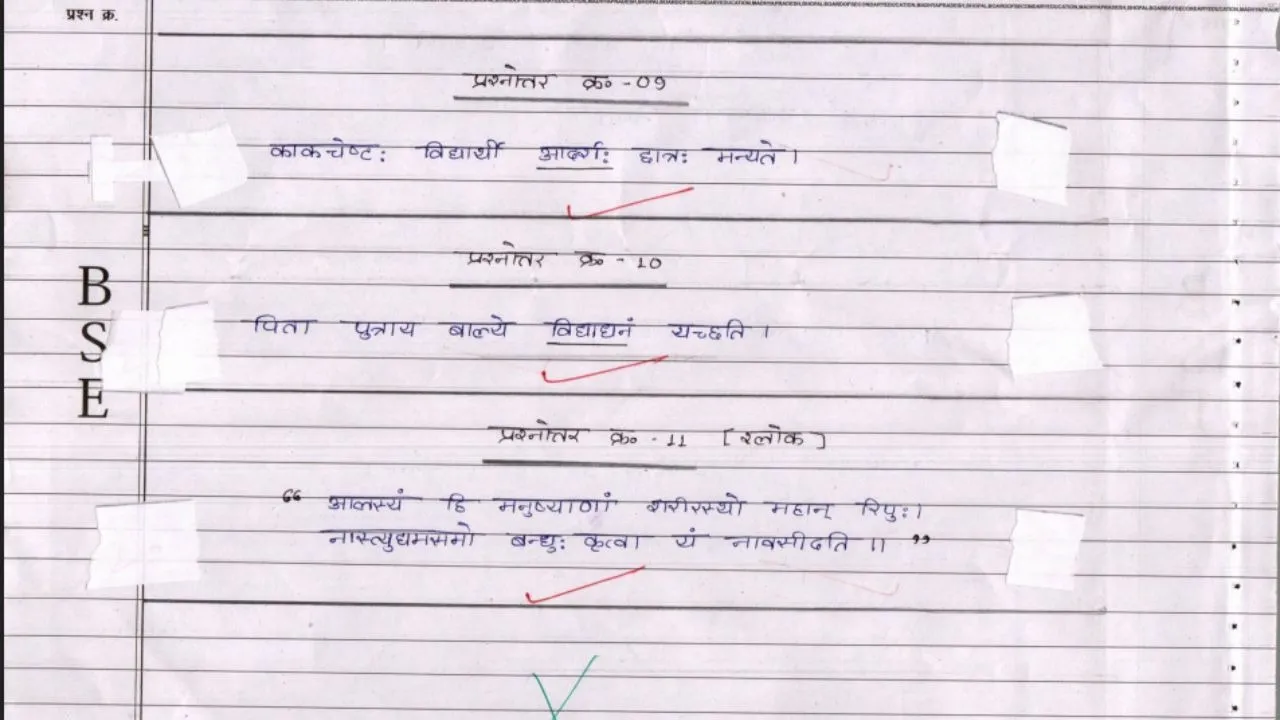 BOARDOFSECONDARYEDUCATION,MADHYAPRADESH,BHOPAL
प्रश्न क्र.
प्रश्नोत्तर क्र० - 09
काकचेष्टः विद्यार्थी आदर्शः छात्रः मन्यते।
प्रश्नोत्तर क्र० - 10
B
S
E
पिता पुत्राय बाल्ये विद्याधनं यच्छति।
प्रश्नोत्तर क्र० - 11 [श्लोक]
“ आलस्यं हि मनुष्याणां शरीरस्थो महान् रिपुः।
नास्त्युद्यमसमो बन्धुः कृत्वा यं नावसीदति ॥ ”